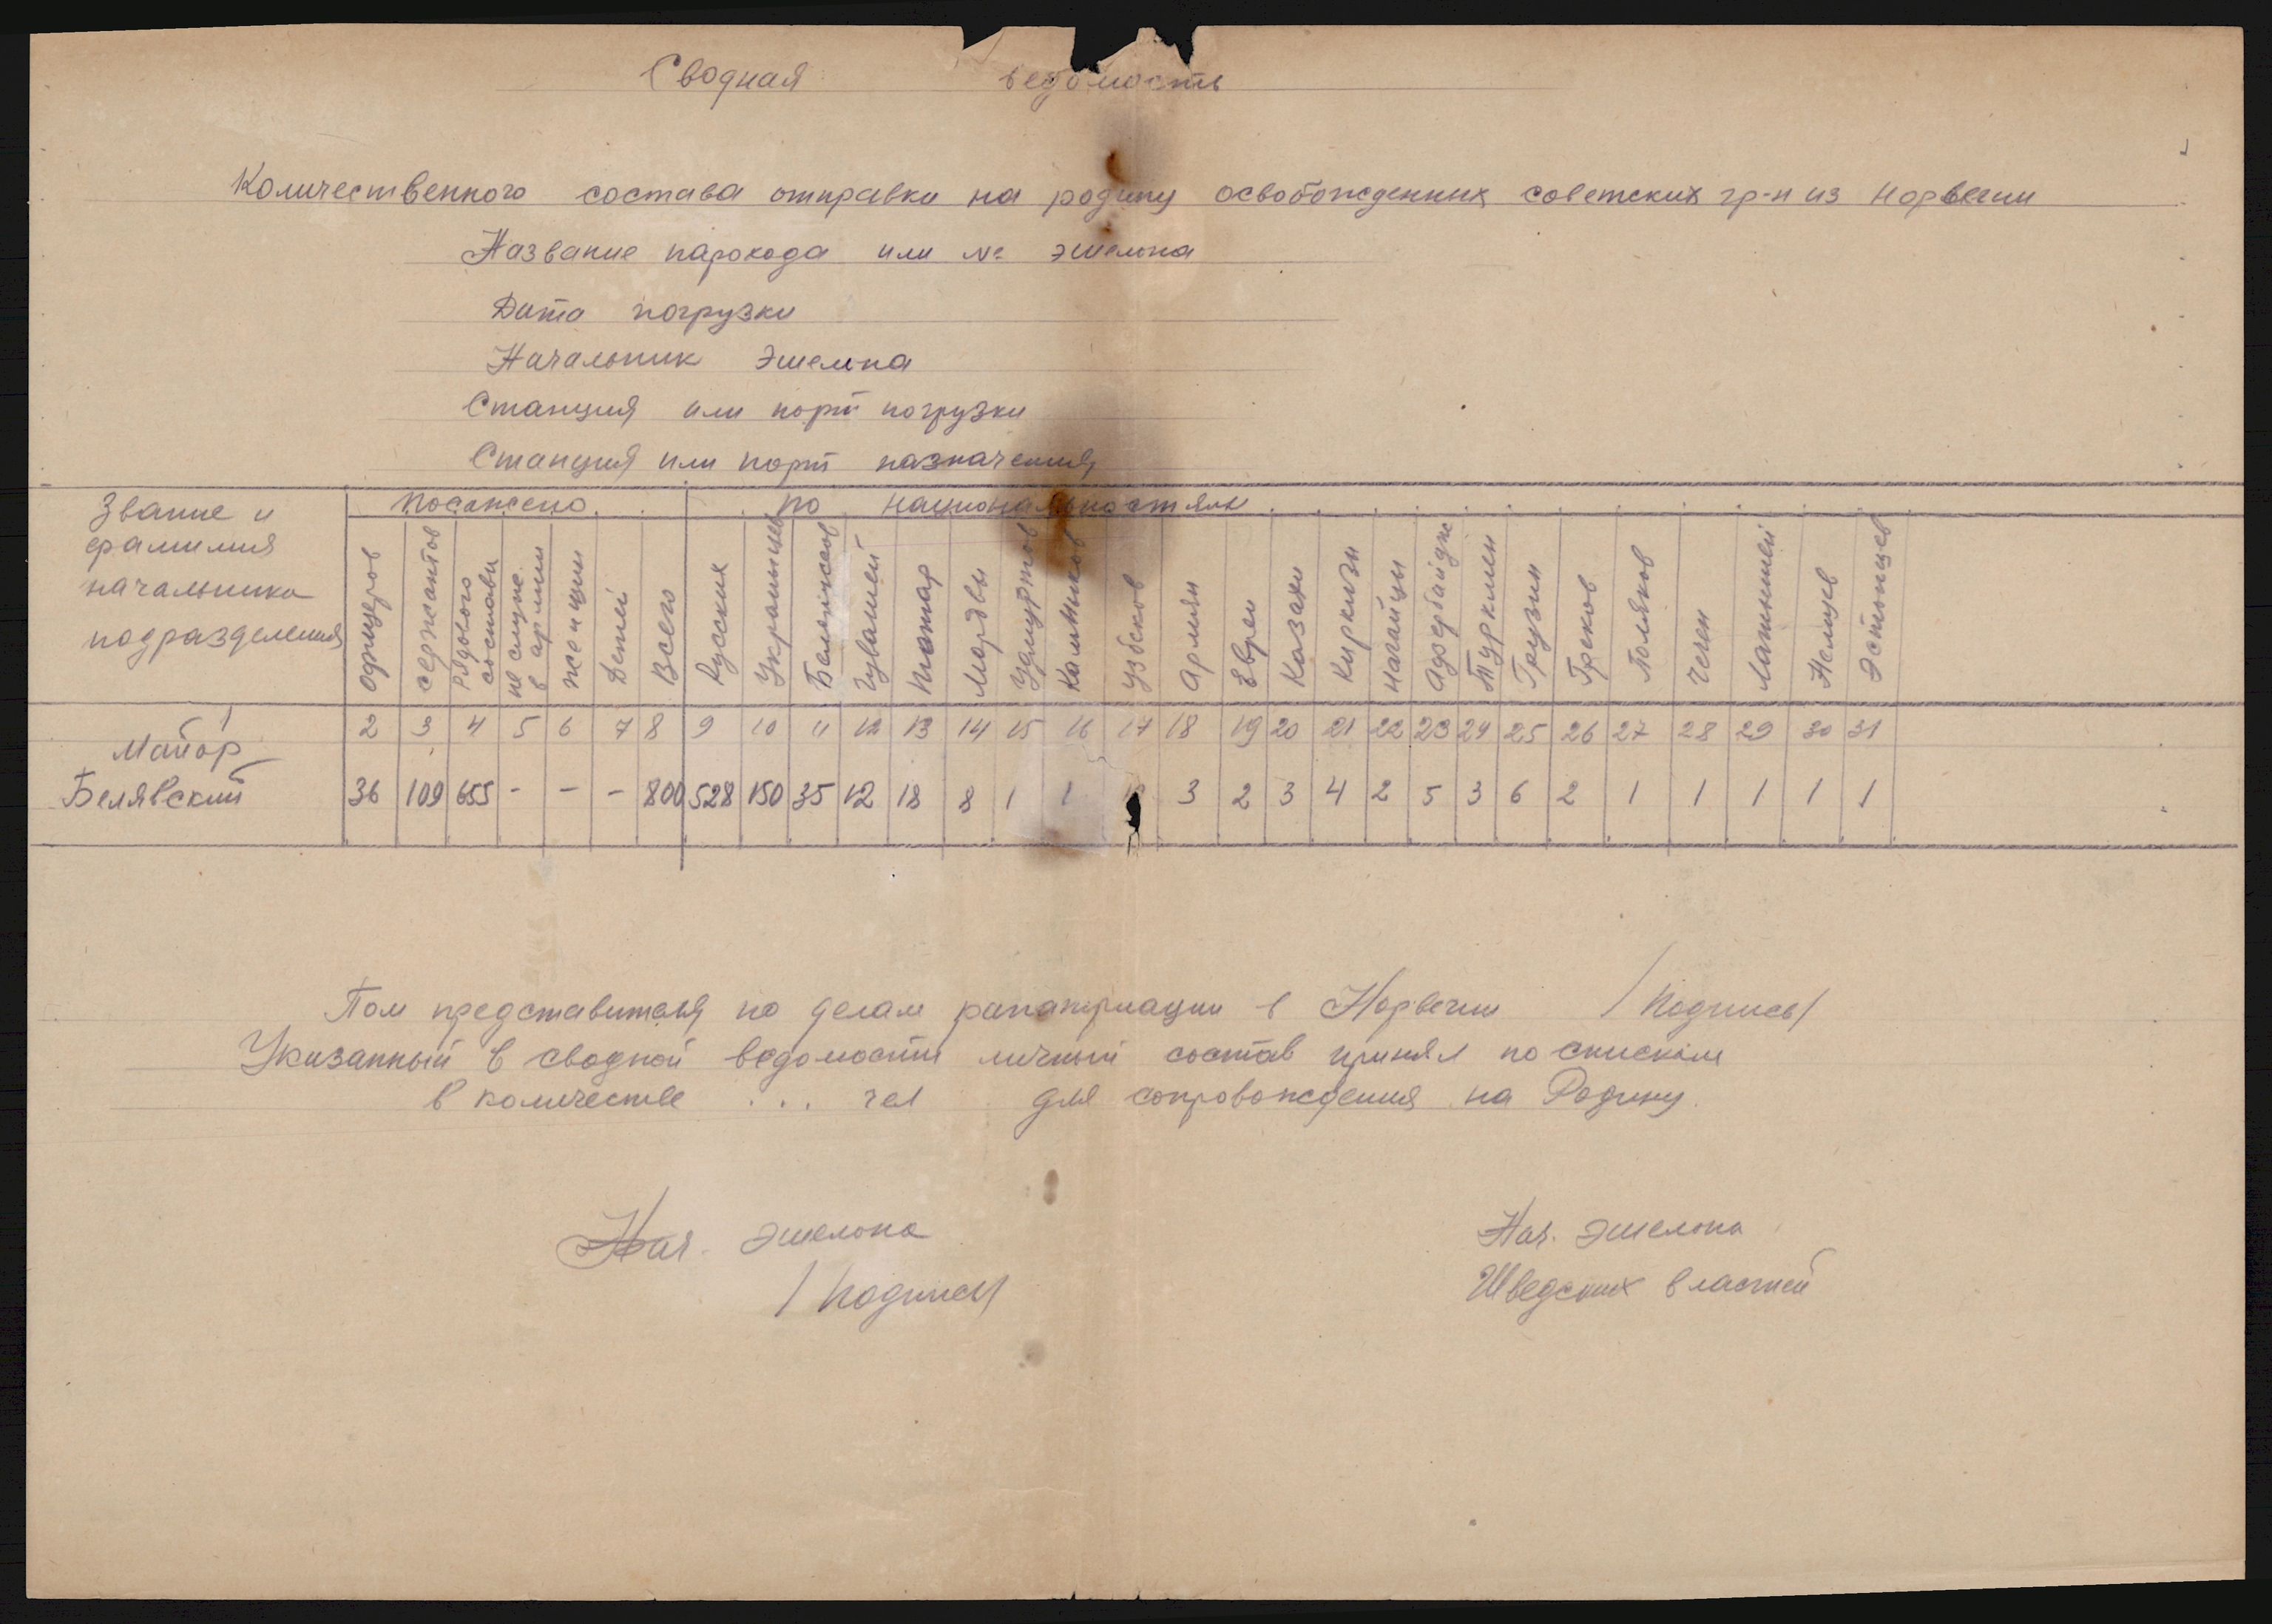 Сводная ведомость
Количественного состава отправки на родину освобожденных советских гр-н из Норвегии
Название парохода или № эшелона
Дата погрузки
Начальник Эшелона
Станция или порт погрузки
Станция или порт назначения
Звание и фамилия начальника подразделения | Посажено | по национальностям
офицеров | сержантов | Рядового состава | не служ. в армии | женщин | Детей | Всего | Русских | Украинцев | Белоруссов | Чувашей | Татар | Мордвы | Удмуртов | Калмыков | Узбеков | Армян | Евреи | Казахи | Киркизы | Нагайцы | Адзербайдж | Туркмен | Грузин | Греков | Поляков | Чечен | Латышией | Немцев | Эстонцев
1 | 2 | 3 | 4 | 5 | 6 | 7 | 8 | 9 | 10 | 11 | 12 | 13 | 14 | 15 | 16 | 17 | 18 | 19 | 20 | 21 | 22 | 23 | 24 | 25 | 26 | 27 | 28 | 29 | 30 | 31
Майор
Белявский | 36 | 109 | 655 | - | - | - | 800 | 528 | 150 | 35 | 12 | 18 | 8 | 1 | 1 | | 3 | 2 | 3 | 4 | 2 | 5 | 3 | 6 | 2 | 1 | 1 | 1 | 1 | 1
Пом представителя по делам рапатриации в Норвегии /Подпись/
Указанный в сводной ведомости личный состав принял по спискам
в количестве ... чел для сопровождения на Родину.
Нач. эшелона
/подпись/
Нач. эшелона
Шведских властей